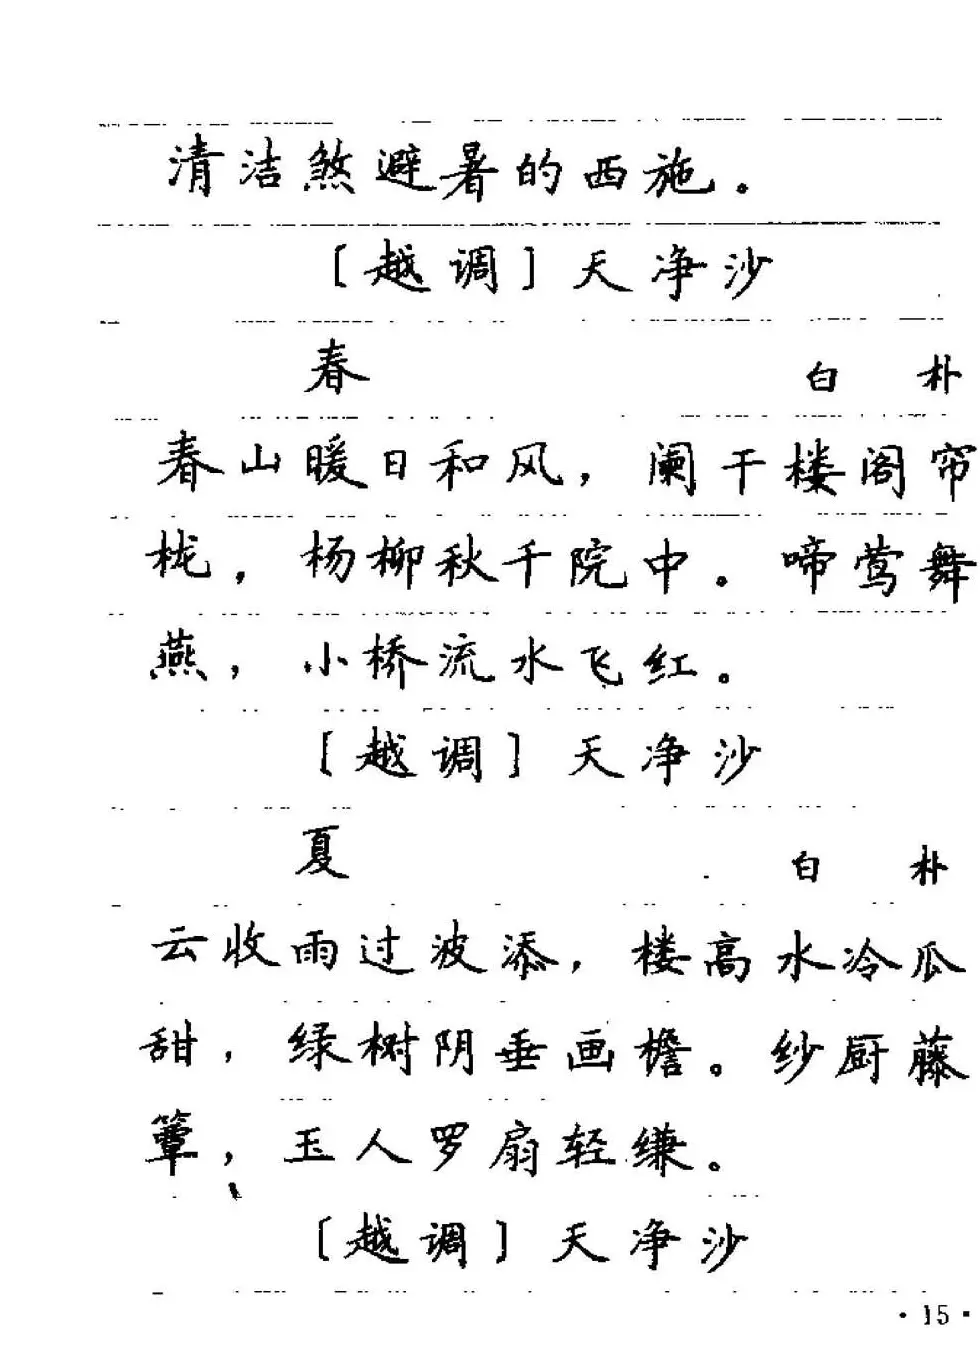 清洁煞避暑的西施。
〔越调〕天净沙
春 白 朴
春山暖日和风，阑干楼阁帘
栊，杨柳秋千院中。啼莺舞
燕，小桥流水飞红。
〔越调〕天净沙
夏 白 朴
云收雨过波添，楼高水冷瓜
甜，绿树阴垂画檐。纱厨藤
簟，玉人罗扇轻缣。
〔越调〕天净沙
·15·